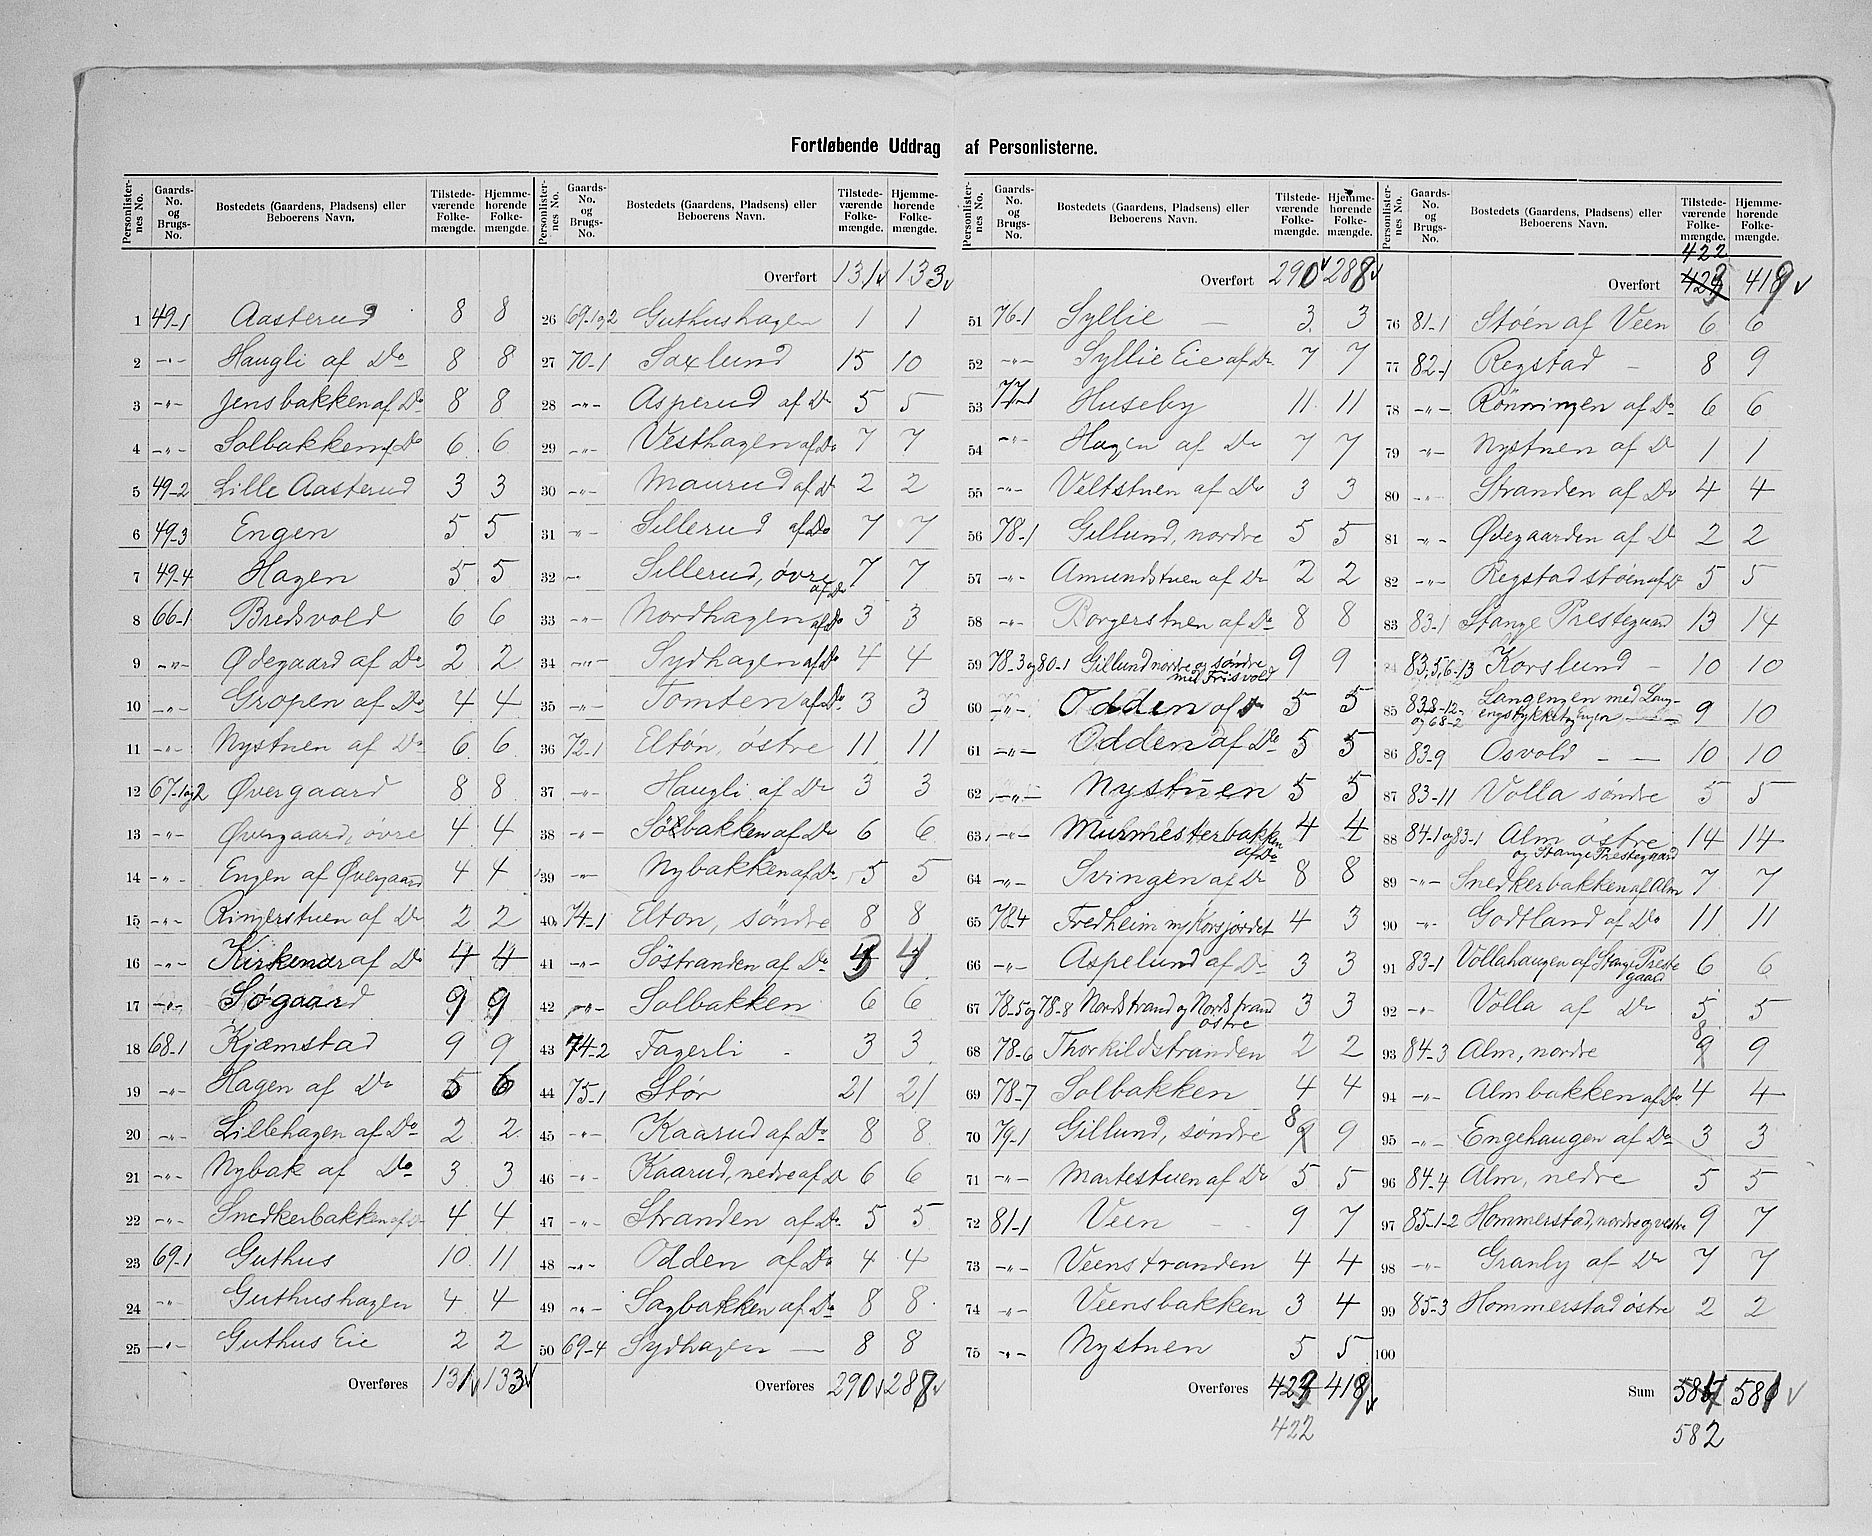 Fortløbende Uddrag af Personlisterne.
Personlisternes No. Gaards-No. og Brugs-No. Bostedets (Gaardens, Pladsens) eller Beboerens Navn. Tilstedeværende Folkemængde. Hjemmehørende Folkemængde.
1 49-1 Aasterud 8 8
2 -"- Haugli af Do 8 8
3 -"- Jensbakken af Do 8 8
4 -"- Solbakken af Do 6 6
5 49-2 Lille Aasterud 3 3
6 49-3 Engen 5 5
7 49-4 Hagen 5 5
8 66-1 Bredsvold 6 6
9 -"- Ødegaard af Do 2 2
10 -"- Gropen af Do 4 4
11 -"- Nystuen af Do 6 6
12 67-1og2 Øvergaard 8 8
13 -"- Øvergaard, øvre 4 4
14 -"- Engen af Øvergaard 4 4
15 -"- Ringerstuen af Do 2 2
16 -"- Kirkenær af Do 4 4
17 -"- Søgaard 9 9
18 68-1 Kjæmstad 9 9
19 -"- Hagen af Do 5 6
20 -"- Lillehagen af Do 2 2
21 -"- Nybak af Do 3 3
22 -"- Snedkerbakken af Do 4 4
23 69-1 Guthus 10 11
24 -"- Guthushagen 4 4
25 -"- Guthus Eie 2 2
Overføres 131 133
Personlisternes No. Gaards-No. og Brugs-No. Bostedets (Gaardens, Pladsens) eller Beboerens Navn. Tilstedeværende Folkemængde. Hjemmehørende Folkemængde.
Overført 131 133
26 69-1og2 Guthushagen 1 1
27 70-1 Saxlund 15 10
28 -"- Asperud af Do 5 5
29 -"- Vesthagen af Do 7 7
30 -"- Maurud af Do 2 2
31 -"- Sillerud af Do 7 7
32 -"- Sillerud, øvre af Do 7 7
33 -"- Nordhagen af Do 3 3
34 -"- Sydhagen af Do 4 4
35 -"- Tomten af Do 3 3
36 72-1 Elton, østre 11 11
37 -"- Haugli af Do 3 3
38 -"- bakken af Do 6 6
39 -"- Nybakken af Do 5 5
40 74-1 Elton, søndre 8 8
41 -"- Søstranden af Do 4
42 -"- Solbakken 6 6
43 74-2 Fagerli 3 3
44 75-1 Stør 21 21
45 -"- Kaarud af Do 8 8
46 -"- Kaarud, nedre af Do 6 6
47 -"- Stranden af Do 5 5
48 -"- Odden af Do 4 4
49 -"- Sagbakken af Do 8 8
50 69-4 Sydhagen 8 8
Overføres 290 288
Personlisternes No. Gaards-No. og Brugs-No. Bostedets (Gaardens, Pladsens) eller Beboerens Navn. Tilstedeværende Folkemængde. Hjemmehørende Folkemængde.
Overført 290 288
51 76-1 Syllie 3 3
52 -"- Syllie Eie af Do 7 7
53 77-1 Huseby 11 11
54 -"- Hagen af Do 7 7
55 -"- Veltstuen af Do 3 3
56 78-1 Gillund, nordre 5 5
57 -"- Amundstuen af Do 2 2
58 -"- Borgerstuen af Do 8 8
59 78-3og80-1 Gillund nordre og søndre med Frisvold 9 9
60 -"- Odden af Do 5 5
61 -"- Odden af Do 5 5
62 -"- Nystuen 5 5
63 -"- Murmesterbakken af Do 4 4
64 -"- Svingen af Do 8 8
65 78-4 Fredheim m/Korsjordet 4 3
66 -"- Aspelund af Do 3 3
67 78-5og78-8 Nordstrand og Nordstrand østre 3 3
68 78-6 Thorkildstranden 2 2
69 78-7 Solbakken 4 4
70 79-1 Gillund, søndre 8 9
71 -"- Martestuen af Do 5 5
72 81-1 Veen 9 7
73 -"- Veenstranden 4 4
74 -"- Veensbakken 3 4
75 -"- Nystuen 5 5
Overføres 423 419
422
Personlisternes No. Gaards-No. og Brugs-No. Bostedets (Gaardens, Pladsens) eller Beboerens Navn. Tilstedeværende Folkemængde. Hjemmehørende Folkemængde.
422
Overført 423 419
76 81-1 Støen af Veen 6 6
77 82-1 Regstad 8 9
78 -"- Rønningen af Do 6 6
79 -"- Nystuen af Do 1 1
80 -"- Stranden af Do 4 4
81 -"- Ødegaarden af Do 2 2
82 -"- Regstadstøen af Do 5 5
83 83-1 Stange Prestegaard 13 14
84 83,5,6-13 Korslund 10 10
85 83,8-12- og 68-2 Langengen med Langengstykket, Engen 9 10
86 83-9 Osvold 10 10
87 83-11 Volla søndre 5 5
88 84-1og83-1 Alm østre og Stange Prestegaard 14 14
89 -"- Snedkerbakken af Alm 7 7
90 -"- Godtland af Do 11 11
91 83-1 Vollahaugen af Stange Prestegaard 6 6
92 -"- Volla af Do 5 5
93 84-3 Alm, nordre 8 9
94 -"- Almbakken af Do 4 4
95 -"- Engehaugen af Do 3 3
96 84-4 Alm, nedre 5 5
97 85-1-2 Hommerstad, nordre og vestre 9 7
98 -"- Granly af Do 7 7
99 85-3 Hommerstad østre 2 2
100
Sum 581
582